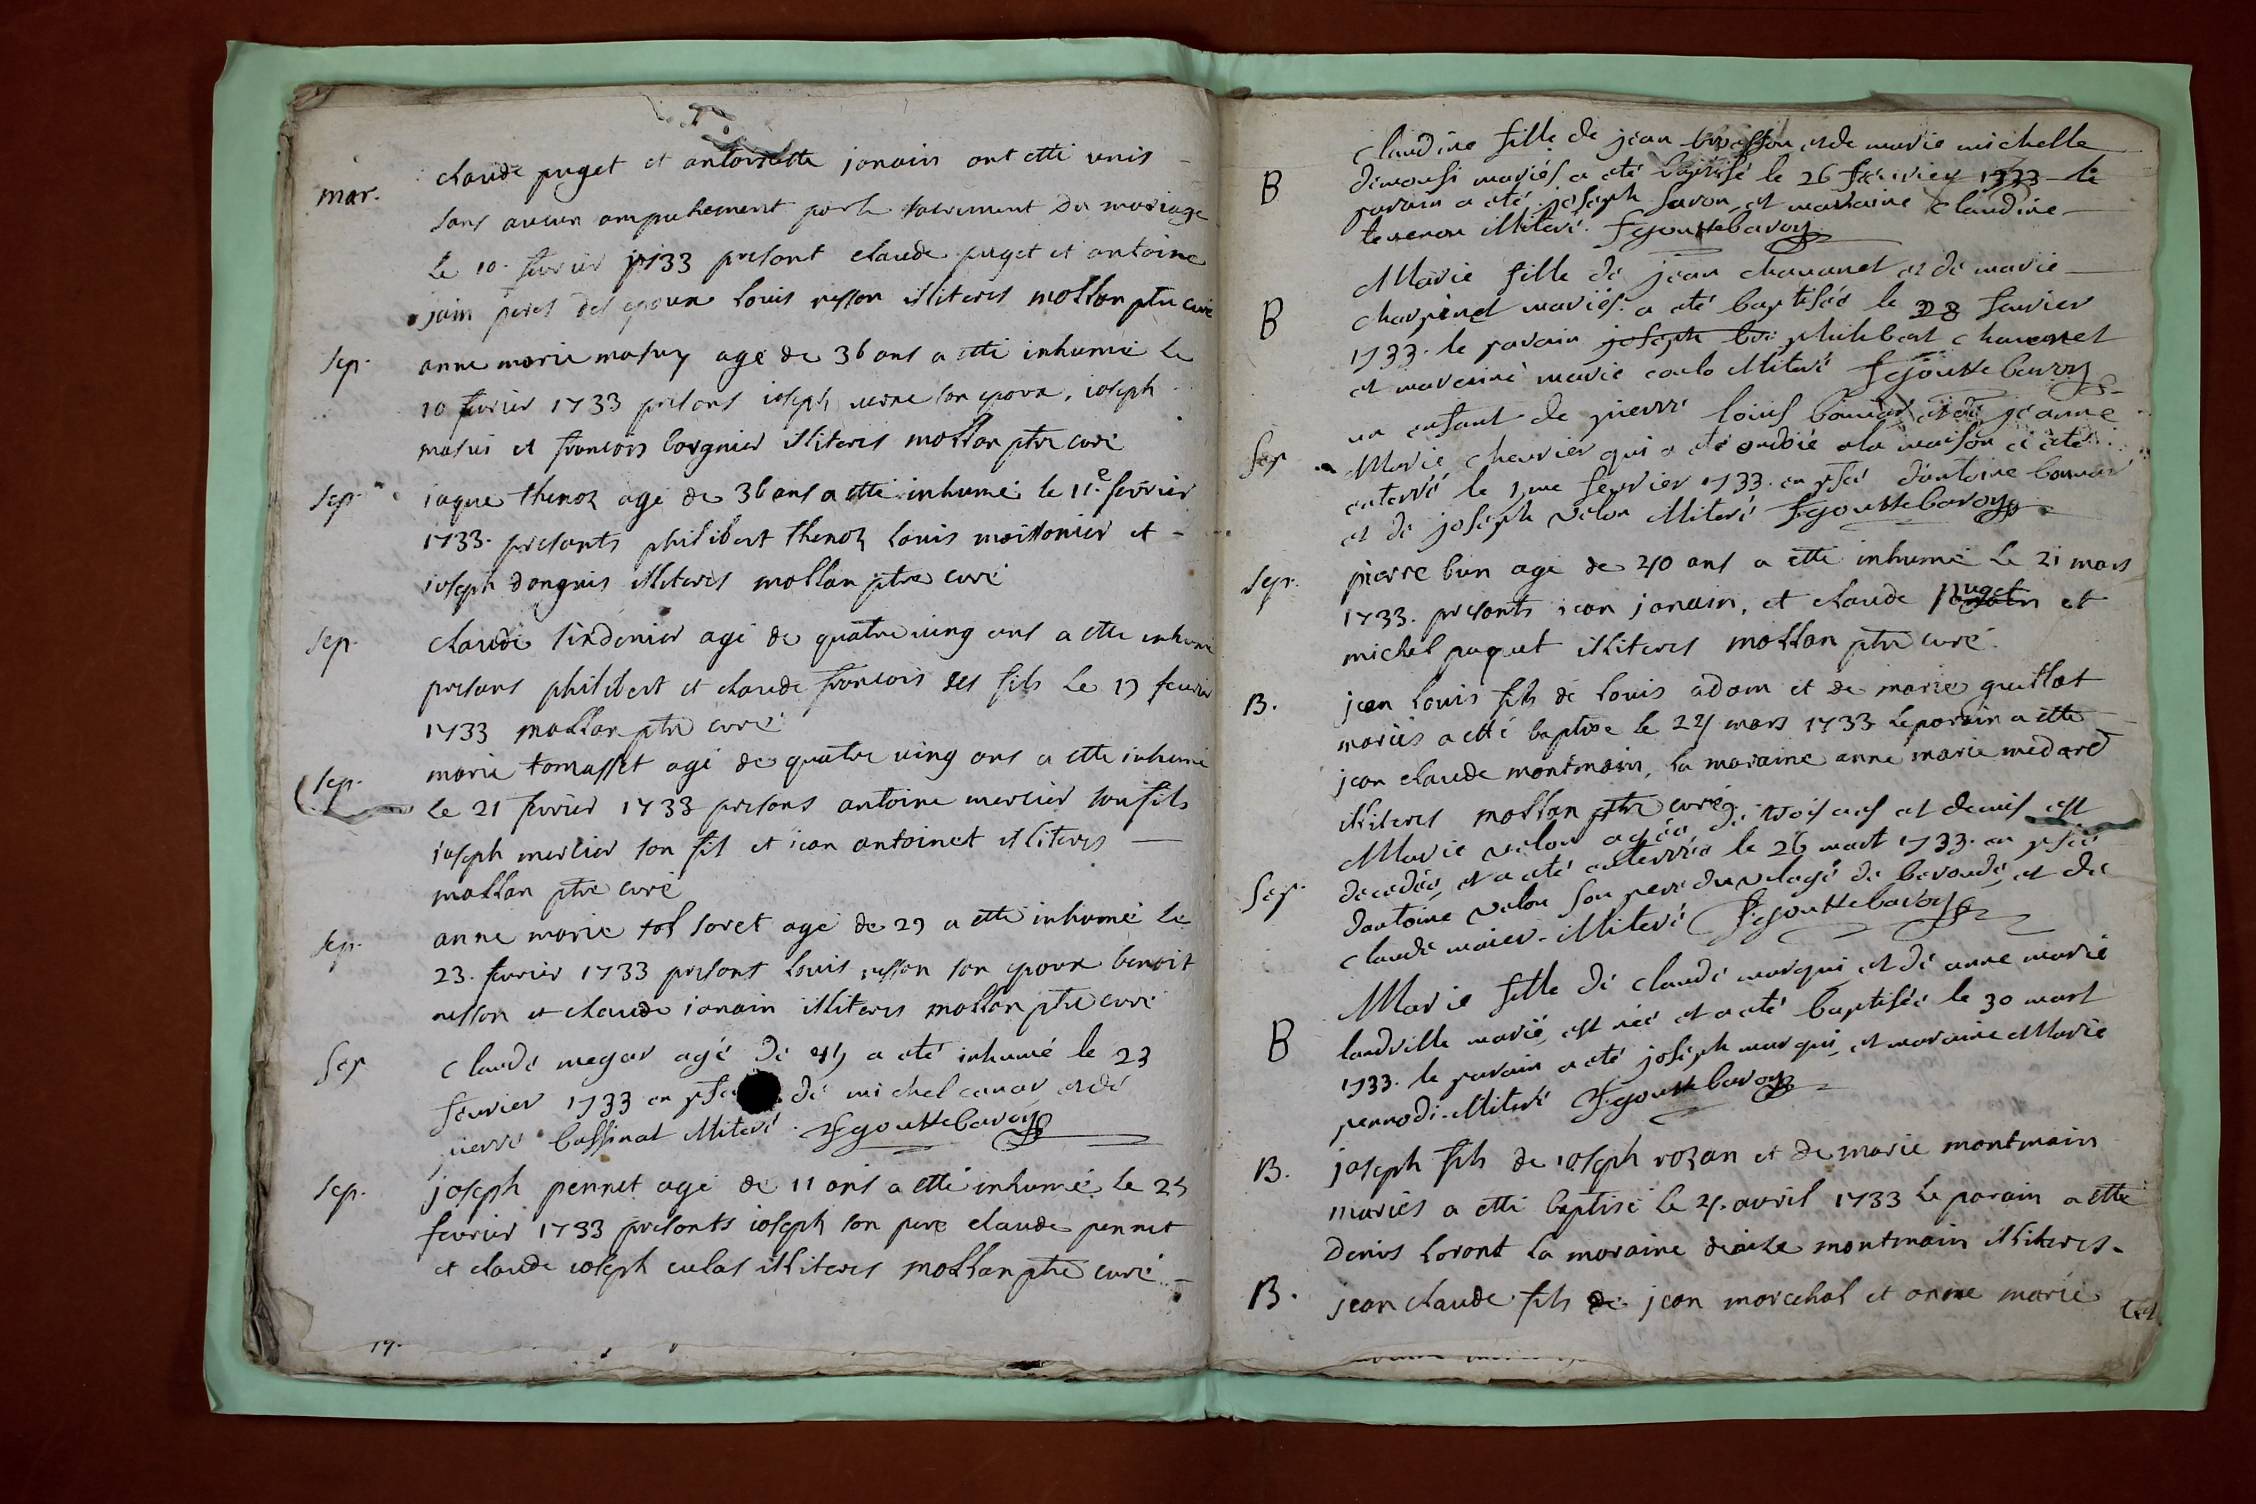 mar.
claude puget et antoinette janain ont etti unis
sans aucun ampechement par le sacrement du mariage
le 10. fevrier 1733 presant claude puget et antoine
jain peres des epoux louis nesson illiteres mollan ptre curé
Sep.
anne marie masuy agé de 36 ans a etti inhumé le
10 fevrier 1733 presans joseph verne son epoux, joseph
masui et francois borgnier illiteres mollan ptre curé
Sep.
jaque thenoz agé de 36 ans a etti inhumé le 11e fevrier
1733. presants philibert thenoz louis moissonier et
joseph donguis illiteres mollan ptre curé
Sep.
claude tindenier agé de quatre ving ans a etti inhumé
presans philibert et claude francois ses fils le 19 fevrier
1733 mollan ptre curé
Sep.
marie tomasset agé de quatre ving ans a etti inhumé
le 21 fevrier 1733 presans antoine mercier son fils
joseph mercier son fil et jean antoinet illiteres
mollan ptre curé
Sep.
anne marie soret agé de 29 a etti inhumé le
23. fevrier 1733 presant louis nesson son epoux benoit
nesson et claude janain illiteres mollan ptre curé
Sep
claude megar agé de a été inhumé le 23
fevrier 1733 en de michel canar et de
pierre bassinat illiteré. Fgouttebaroz
Sep.
joseph pennet agé de 11 ans a etti inhumé le 25
fevrier 1733 presants joseph son pere claude pennet
et claude joseph culas illiteres mollan ptre curé
19.
B
claudine fille de jean et de marie michelle
demousi mariés a été baptisé le 26 fevrier 1733 le
parain a été joseph savon et maraine claudine
tevenon illiteré. Fgouttebaroz
B
Marie fille de jean chavanel et de marie
charpinel mariés. a été baptisée le 28 fevrier
1733. le parain joseph philibert chavanel
et maraine marie carlo illiteré Fgouttebaroz
Sep
un enfant de pierre louis bomar et de jeanne
Marie chevrier qui a été ondoié a la maison a été
enterré le 1me fevrier 1733. en psce d'antoine bomar
et de joseph velon illiteré Fgouttebaroz
Sep.
pierre bun agé de 40 ans a etti inhumé le 21 mars
1733. presants jean janain, et claude puget et
michel paquet illiteres mollan ptre curé.
B.
jean louis fils de louis adam et de marie guillot
mariés a etté baptise le 24 mars 1733 le parain a etté
jean claude montmain, la maraine anne marie medard
illiteres mollan ptre curé
Sep.
Marie velon agée de trois ans et demis est
decedée, et a été enterrée le 26 mart 1733. en psce
dantoine velon son pere du vilage de beroude, et de
claude maier. illiteré Fgouttebaroz
B
Marie fille de claude marqui, et de anne marie
landville marié, est née et a été baptisée le 30 mart
1733. le parain a été joseph marqui, et maraine Marie
pernodi. illiteré Fgouttebaroz
B.
joseph fils de joseph rozan et de marie montmain
mariés a etti baptisé le 4. avril 1733 le parain a etté
denis loront la maraine montmain illiteres.
B.
jean claude fils de jean marechal et anne marie